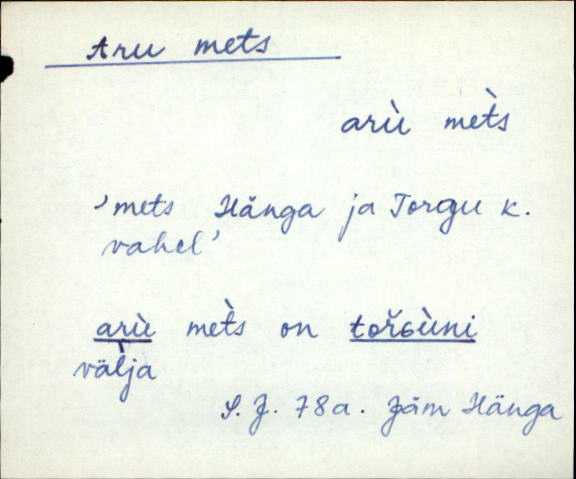 Aru mets
arù met̀s
'mets Hänga ja Torgu k.
vahel'
arù met̀s on
välja
S. J. 78a. Jäm Hänga